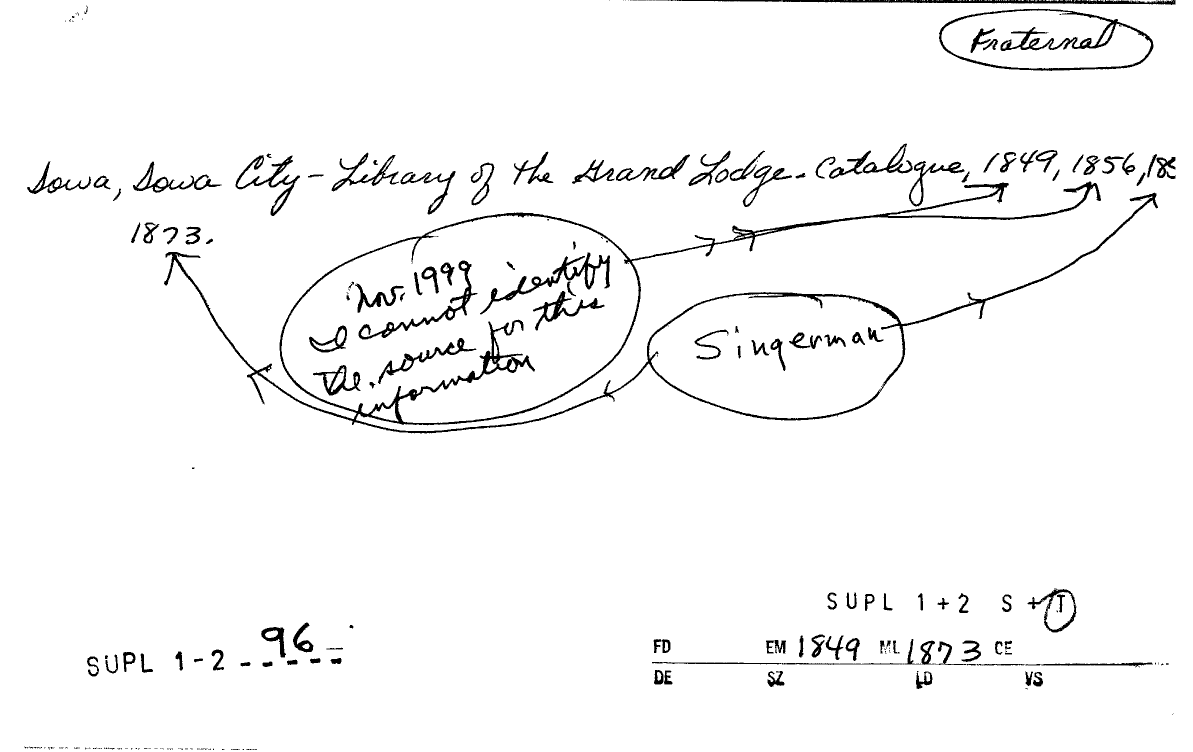 Fraternal
Iowa, Iowa City - Library of the Grand Lodge. Catalogue, 1849, 1856,
1873.
Nov. 1999
I cannot identify
the source for this
information
Singerman
SUPL 1+2 S + I
SUPL 1-2 96
FD EM 1849 ML 1873 CE
DE SZ LD VS